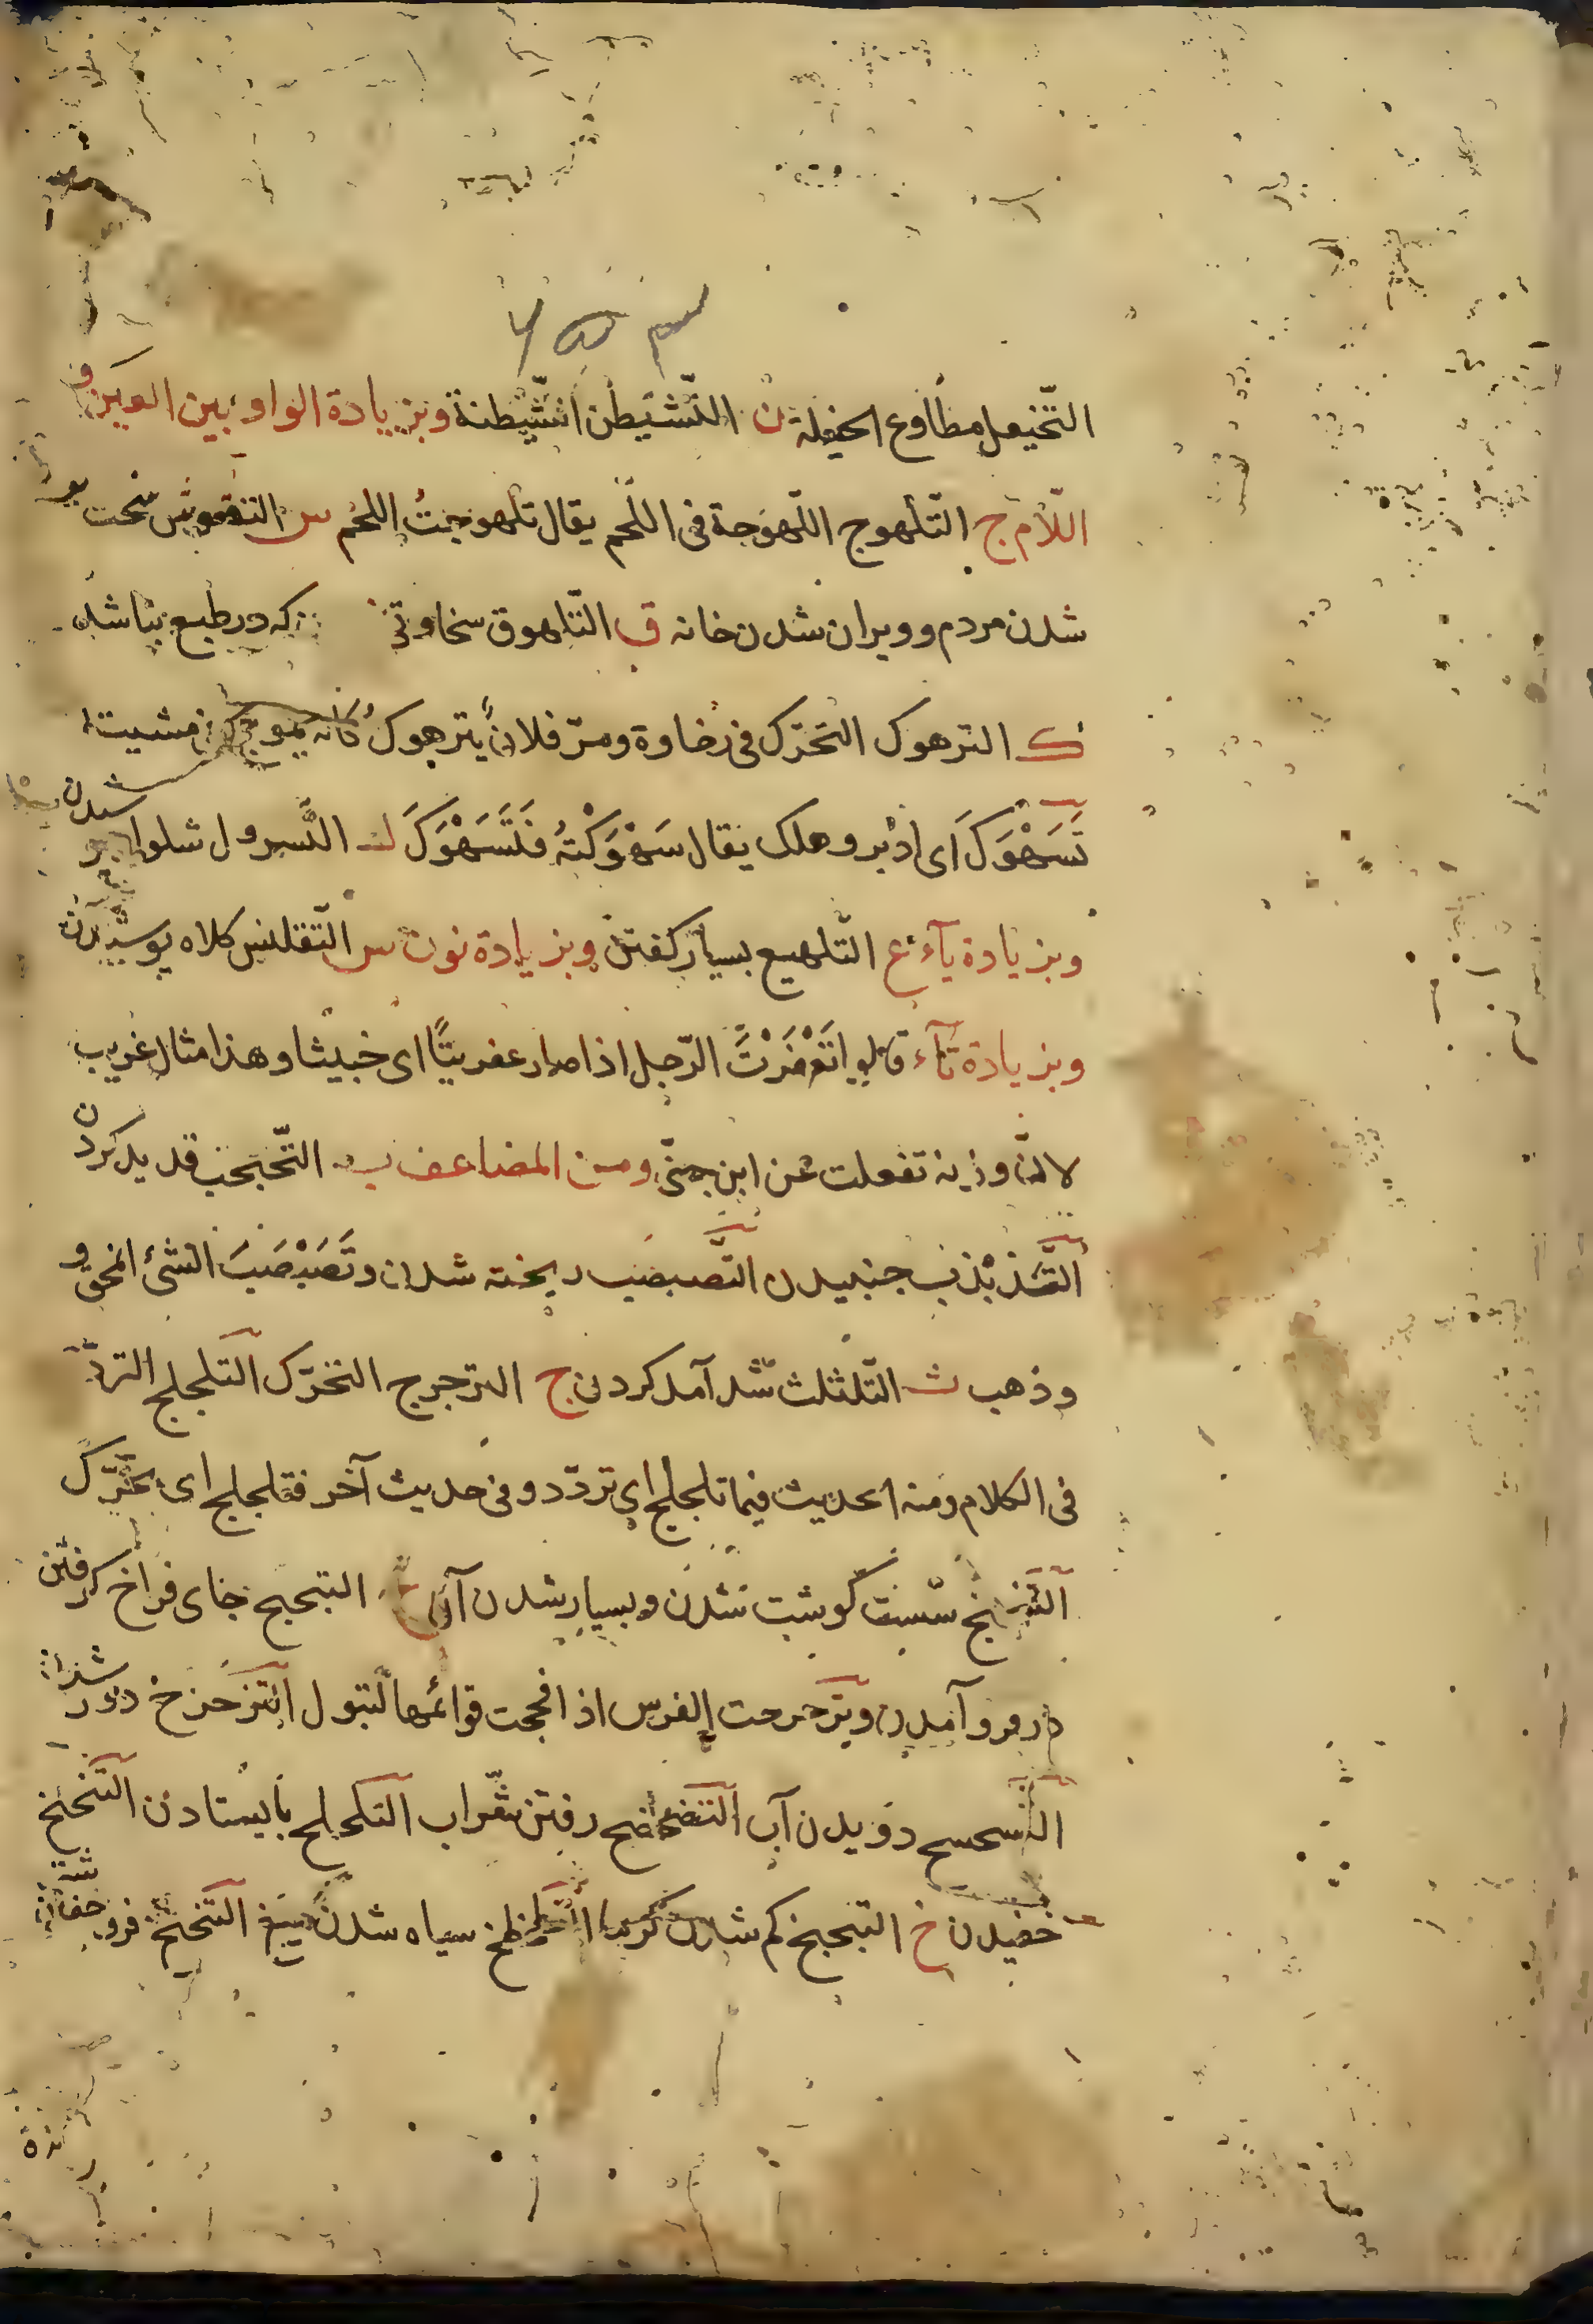 التّخيعل مطاوع الخيعلة ن التّشيطن الشّيطنة وبزيادة الواو بين العين و
اللّام ج التّلهوج اللّهوجة فى اللّحم يقال تلهوجتُ اللحم س التقعوش سخت پير
شدن مردم وويران شدن خانه ق التّلهوق سخاوتى كه در طبع نباشد
ك الترهوك التحرّك فى رخاوة ومرّ فلانٌ يترهوك كانه يموج فى مشيته
تَسَهْوَكَ اى ادْبر وهلك يقال سَهْوَكْتُهُ فَتَسَهْوَكَ ل التّسرول شلوار پو شيدن
وبزيادة يآء ع التّلهيع بسيار كفتن وبزيادة نون س التّقلنس كلاه پوشيدن
وبزيادة تآء قالوا تَعَفْرَتَ الرّجل اذا صار عفريتًا اى خبيثا وهذا مثال غريب
لانّ وزنه تفعلت عن ابن جنّى ومن المضاعف ب التّخبخب قديد كردن
التّذبْذب جنبيدن التّصبصب ريخته شدن وتَصَبْصَبَ الشئ امّحق و
وذهب ث التّلثلث شد آمد كردن ج الترجرج التحرّك التلجلج التردّد
فى الكلام ومنه الحديث فيما تلجلج اى تردّد وفى حديث آخر فتلجلج اى تحرّك
سست كوشت شدن وبسيار شدن آن ح التبحبح جاى فراخ كرفتن
در فرو آمدن وترحرحت الفرس اذا افحجت قوائمها لتبول التّزحزح دور شدن
التّسحسح دويدن آب التضحضح رفتن شراب التكحلح بايستادن التّنحنح
خفيدن خ التبخبخ كم شدن كرما التّطخطخ سياه شدن ميغ